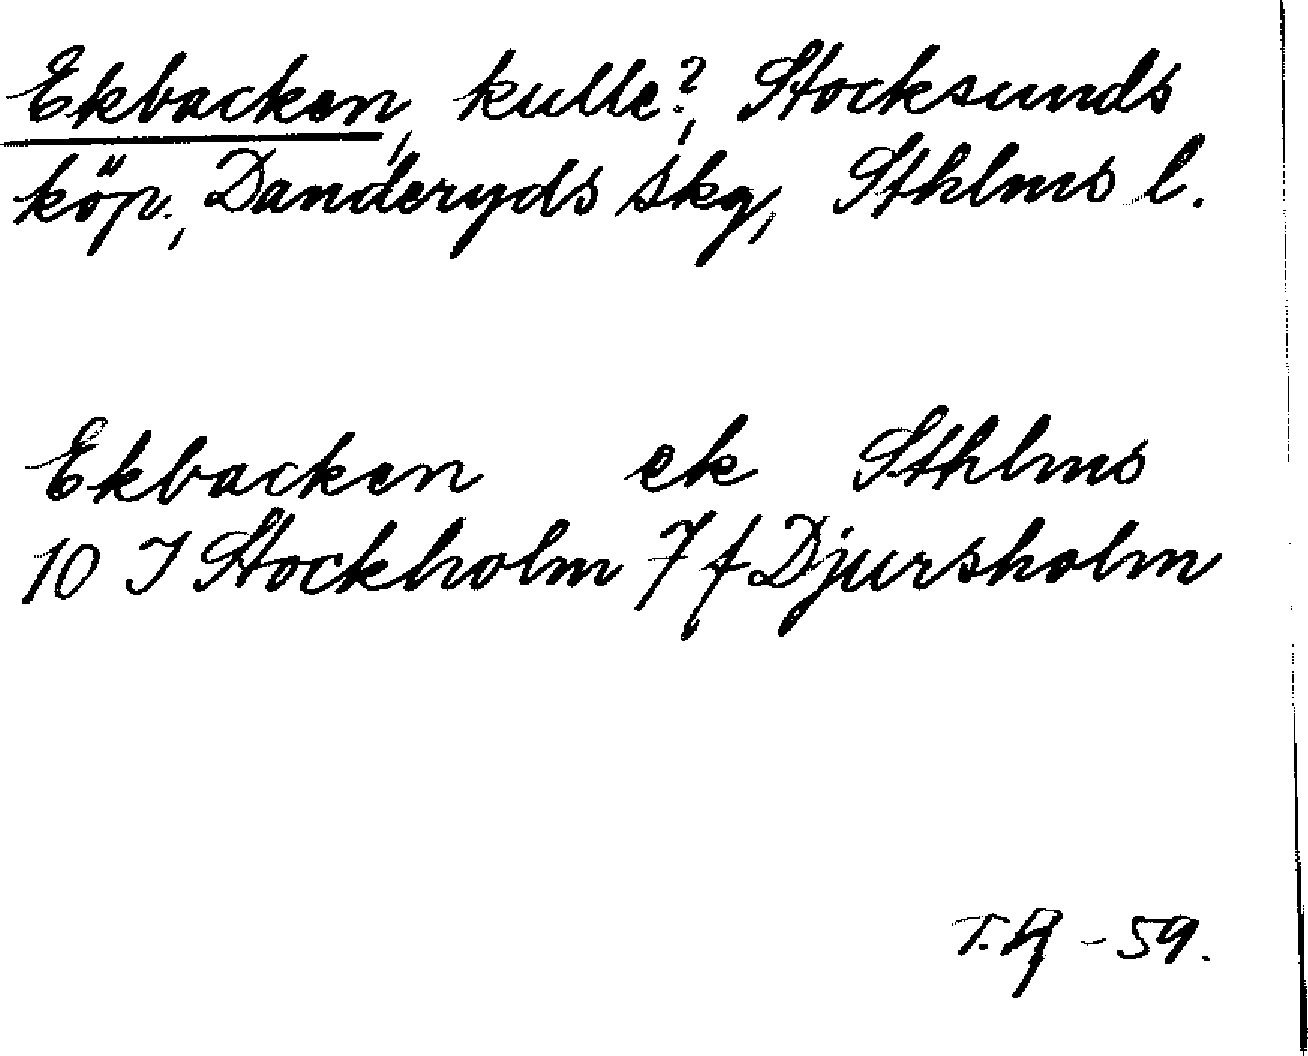 Ekbacken, kulle?, Stocksunds
köp., Danderyds skg, Sthlms l.
Ekbacken ek Sthlms
10 I Stockholm 7 f Djursholm
-59.